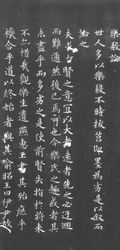 樂毅論
世人多以樂毅不時拔莒即墨為劣是以叙而
論之
夫求古賢之意宜以大者遠者先之必迂迴
而難通然後已焉可也今樂氏之趣或者其
未盡乎而多劣之是使前賢失指於將來
不亦惜哉觀樂生遺燕惠王書其殆庶乎
機合乎道以終始者與其喻昭王曰伊尹放